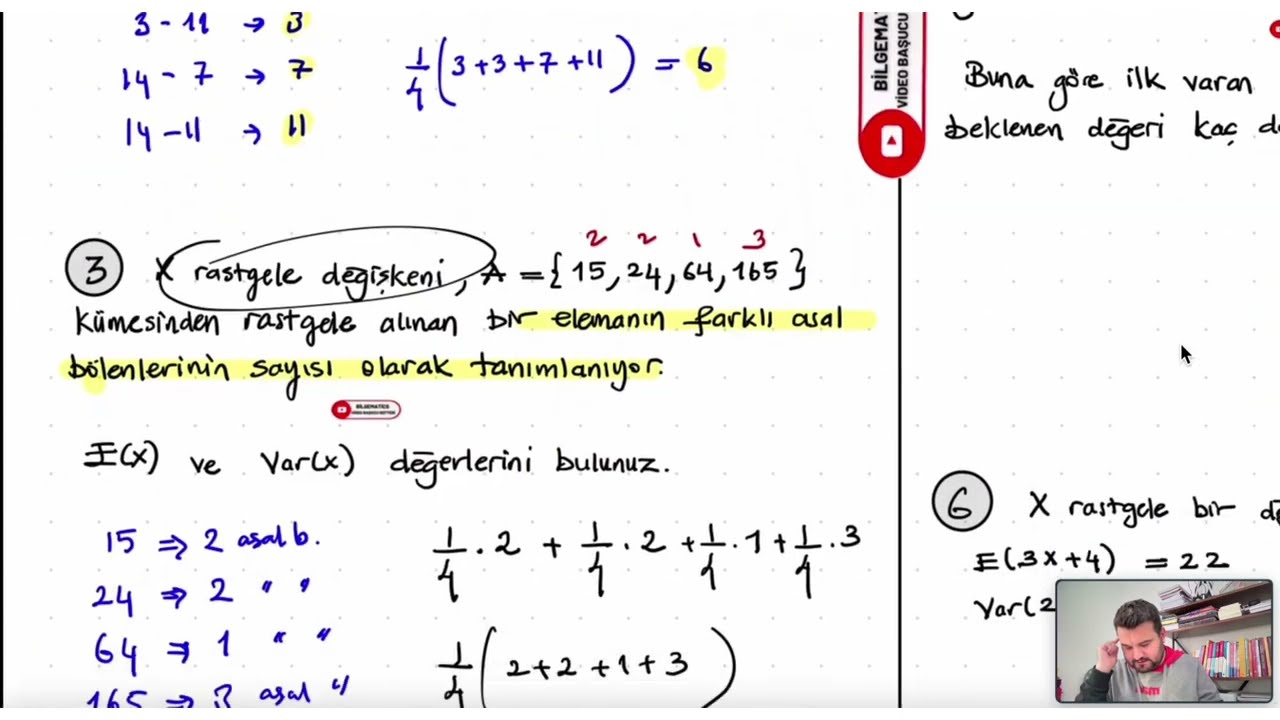 3 - 11 → 3
14 - 7 → 7
14 - 11 → 11
1/4 (3+3+7+11) = 6
BİLGEMA
VİDEO BAŞUCU
Buna göre ilk varan
beklenen değeri kaç d
2 2 1 3
3 X rastgele değişkeni, A = {15, 24, 64, 165}
Kümesinden rastgele alınan bir elemanın farklı asal
bölenlerinin sayısı olarak tanımlanıyor.
BİLGEMATİCS
E(X) ve Var(x) değerlerini bulunuz.
15 ⇒ 2 asal b.
24 ⇒ 2 " "
64 ⇒ 1 " "
165 ⇒ 3 asal "
1/4 . 2 + 1/4 . 2 + 1/4 . 1 + 1/4 . 3
1/4 (2+2+1+3)
6 X rastgele bir de
E(3X+4) = 22
Var(2